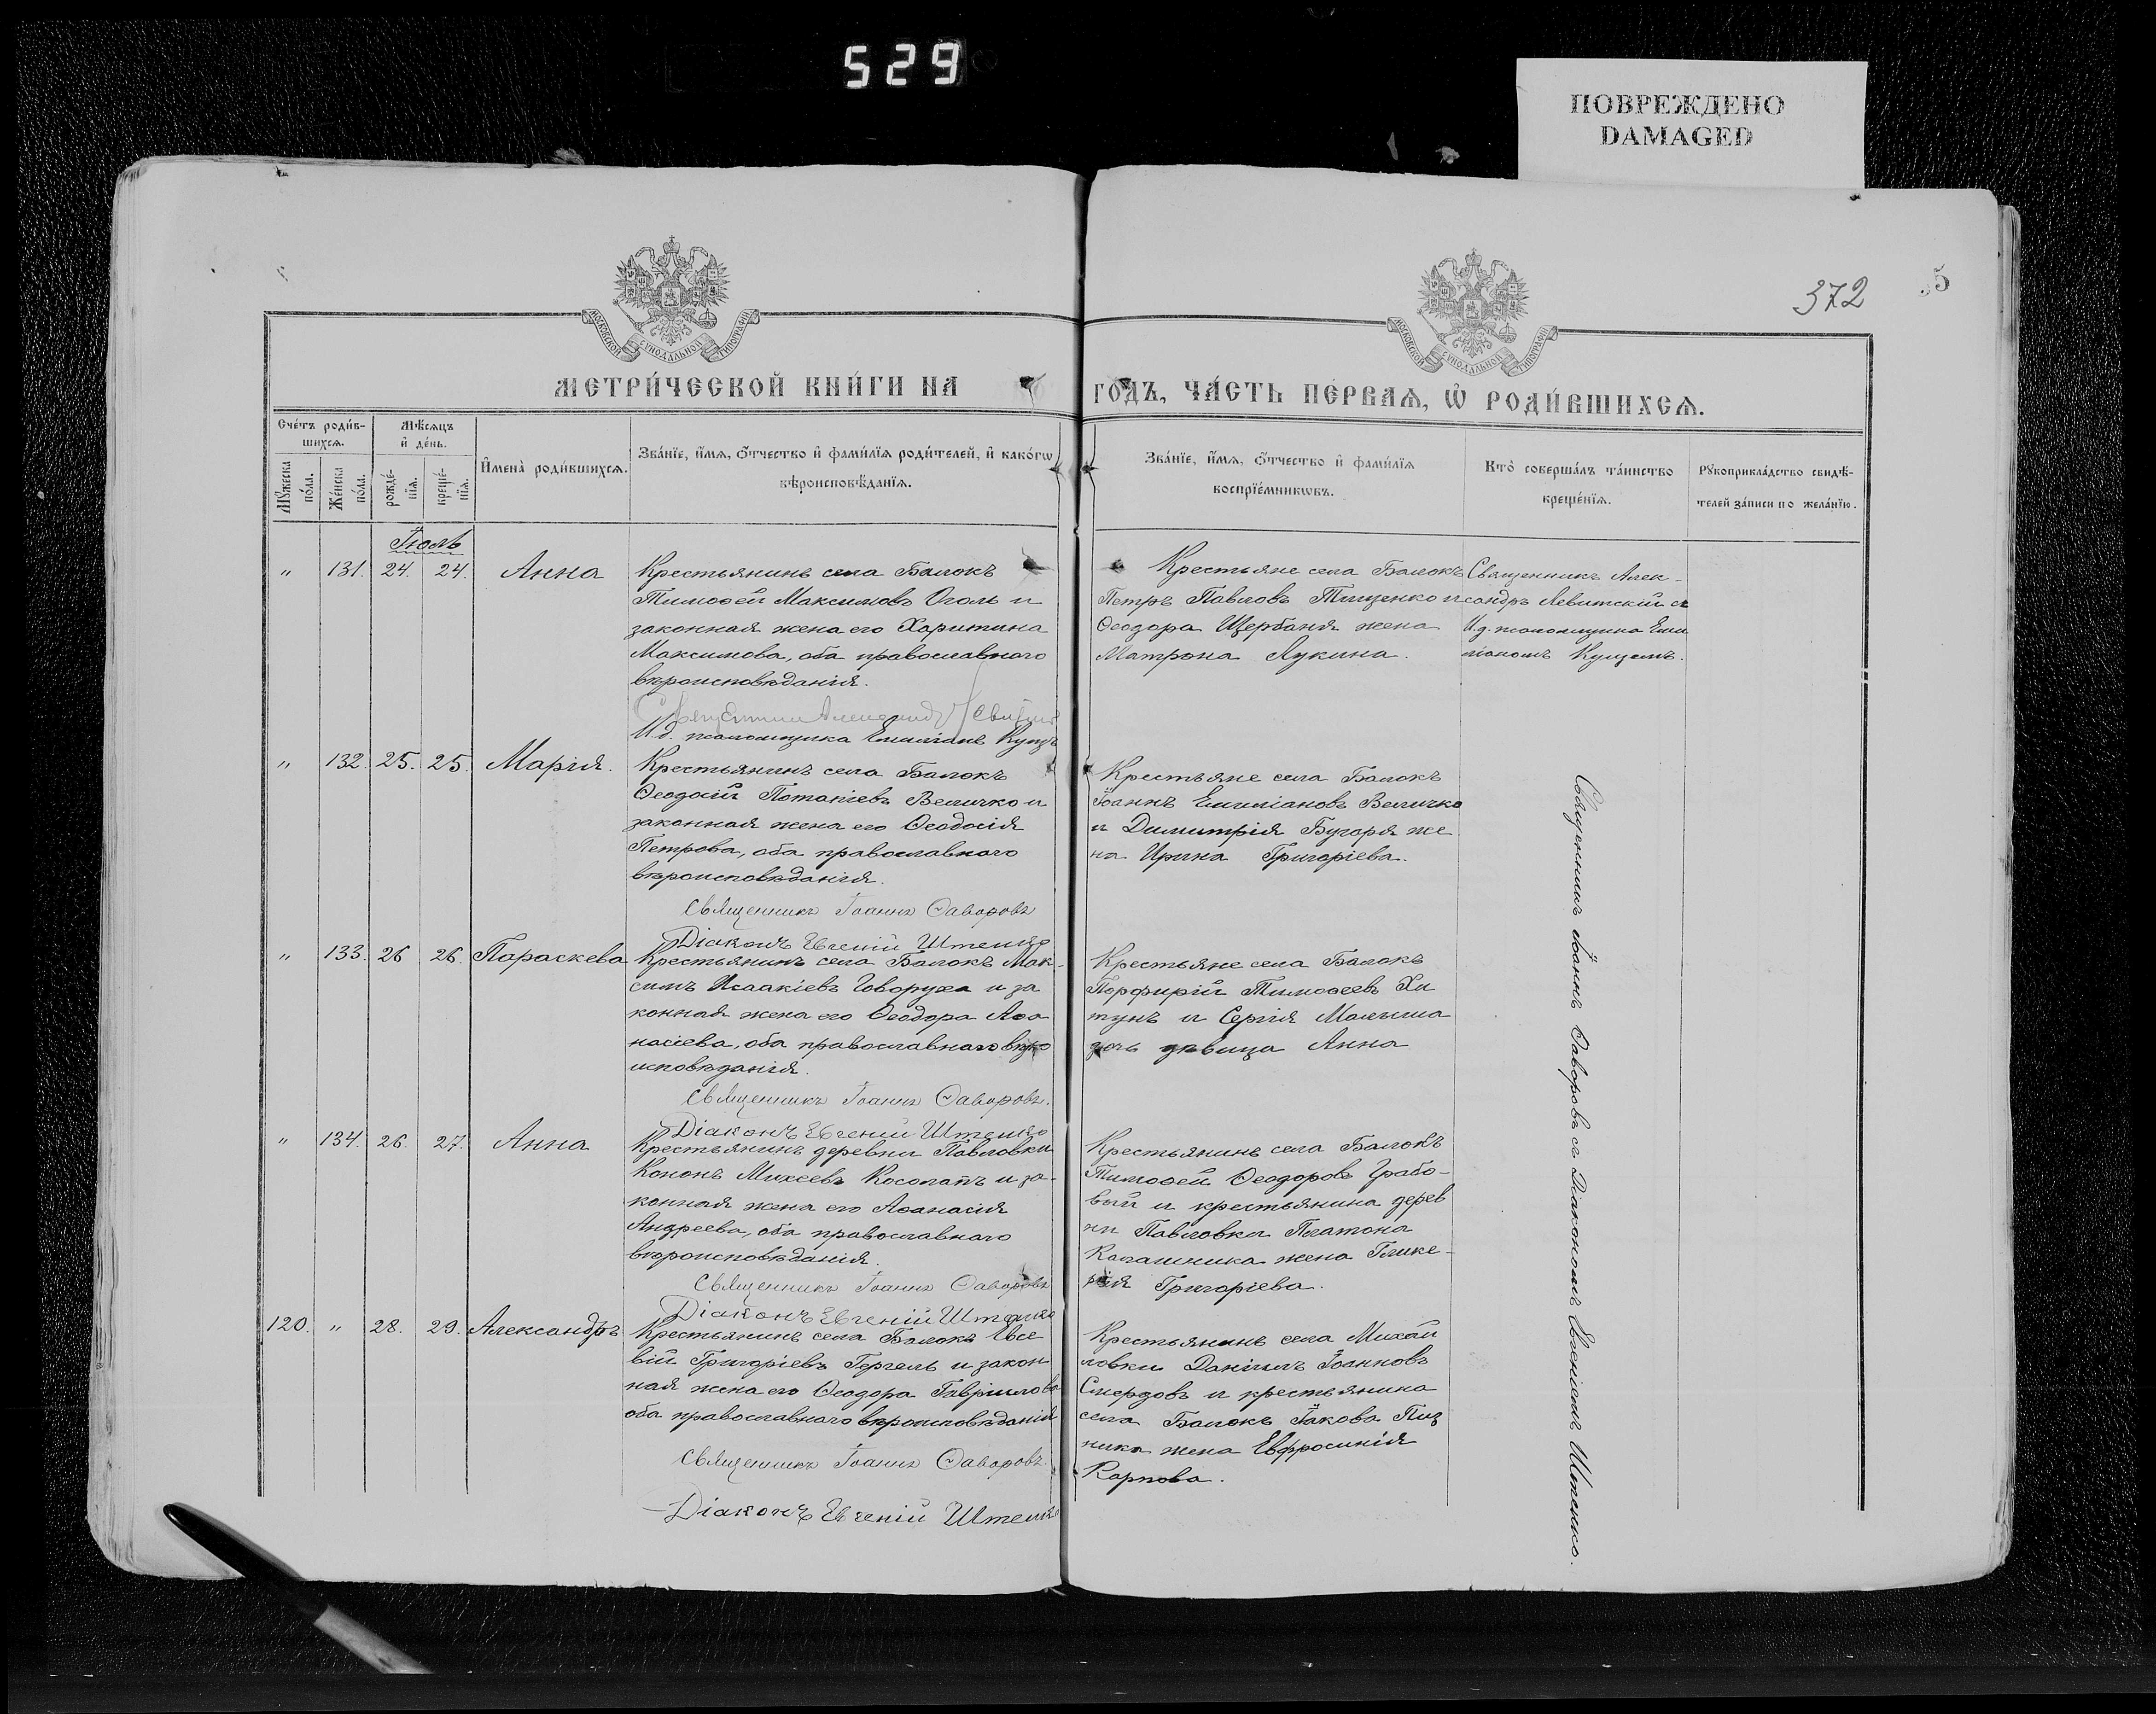 529
ПОВРЕЖДЕНО
DAMAGED
372
5
МОСКОВСКОЙ СѴНОДАЛЬНОЙ ТИПОГРАФІИ
МОСКОВСКОЙ СѴНОДАЛЬНОЙ ТИПОГРАФІИ
МЕТРИ́ЧЕСКОЙ КНИ́ГИ НА
ГОДЪ, ЧА́СТЬ ПЕ́РВАѦ, Ѡ҆ РОДИ́ВШИХСѦ.
Сче́тъ роди́в-
шихсѧ.
Мꙋ́жеска
по́ла.
Же́нска
по́ла.
Мѣ́сѧцъ
и҆ де́нь.
рожде́-
нїѧ.
креще́-
нїѧ.
И҆мена̀ роди́вшихсѧ.
Зва́нїе, и҆́мѧ, ѻ҆́тчество и҆ фами́лїѧ роди́телей, и҆ како́гѡ
вѣроисповѣ́данїѧ.
Зва́нїе, и҆́мѧ, ѻ҆́тчество и҆ фами́лїѧ
воспрїе́мникѡвъ.
Кто̀ соверша́лъ та́инство
креще́нїѧ.
Рꙋкоприкла́дство свидѣ́-
телей за́писи по жела́нїю.
Іюль
" 131. 24. 24. Анна
Крестьянинъ села Балокъ
Тимоѳей Максимовъ Оголь и
законная жена его Харитина
Максимова, оба православнаго
вѣроисповѣданія.
И.д. псаломщика Емиліанъ Кущъ
Крестьяне села Балокъ
Петръ Павловъ Тищенко и
Ѳеодора Щербаня жена
Матрона Лукина.
Священникъ Алек-
сандръ Левитскій съ
И.д. псаломщика Еми
ліаномъ Кущемъ.
" 132. 25. 25. Марія.
Крестьянинъ села Балокъ
Ѳеодосій Потапіевъ Величко и
законная жена его Ѳеодосія
Петрова, оба православнаго
вѣроисповѣданія.
Священникъ Іоаннъ Ѳаворовъ
Діаконъ Евгеній Штепко
Крестьяне села Балокъ
Іоаннъ Емиліановъ Величко
и Димитрія Бугоря же
на Ирина Григоріева.
" 133. 26 26. Параскева
Крестьянинъ села Балокъ Мак-
симъ Исаакіевъ Говоруха и за
конная жена его Ѳеодора Аѳа
насіева, оба православнаго вѣро
исповѣданія.
Священникъ Іоаннъ Ѳаворовъ.
Діаконъ Евгеній Штепко
Крестьяне села Балокъ
Порфирій Тимоѳеевъ Хи
тунъ и Сергія Малыша
дочь дѣвица Анна
" 134. 26. 27. Анна
Крестьянинъ деревни Павловки
Кононъ Михеевъ Косолапъ и за-
конная жена его Аѳанасія
Андреева, оба православнаго
вѣроисповѣданія.
Священникъ Іоаннъ Ѳаворовъ
Діаконъ Евгеній Штепко
Крестьянинъ села Балокъ
Тимоѳей Ѳеодоровъ Грабо-
вый и крестьянина дерев
ни Павловки Платона
Калашника жена Глике-
рія Григоріева.
120. " 28. 29. Александръ
Крестьянинъ села Балокъ Евсе
вій Григоріевъ Гергель и закон
ная жена его Ѳеодора Гавріилова
оба православнаго вѣроисповѣданія
Священникъ Іоаннъ Ѳаворовъ.
Діаконъ Евгеній Штепко
Крестьянинъ села Михай
ловки Даніилъ Іоанновъ
Смердовъ и крестьянина
села Балокъ Іакова
жена Евфросинія
Карпова.
Священникъ Іоаннъ Ѳаворовъ съ Діакономъ Евгеніемъ Штепко.